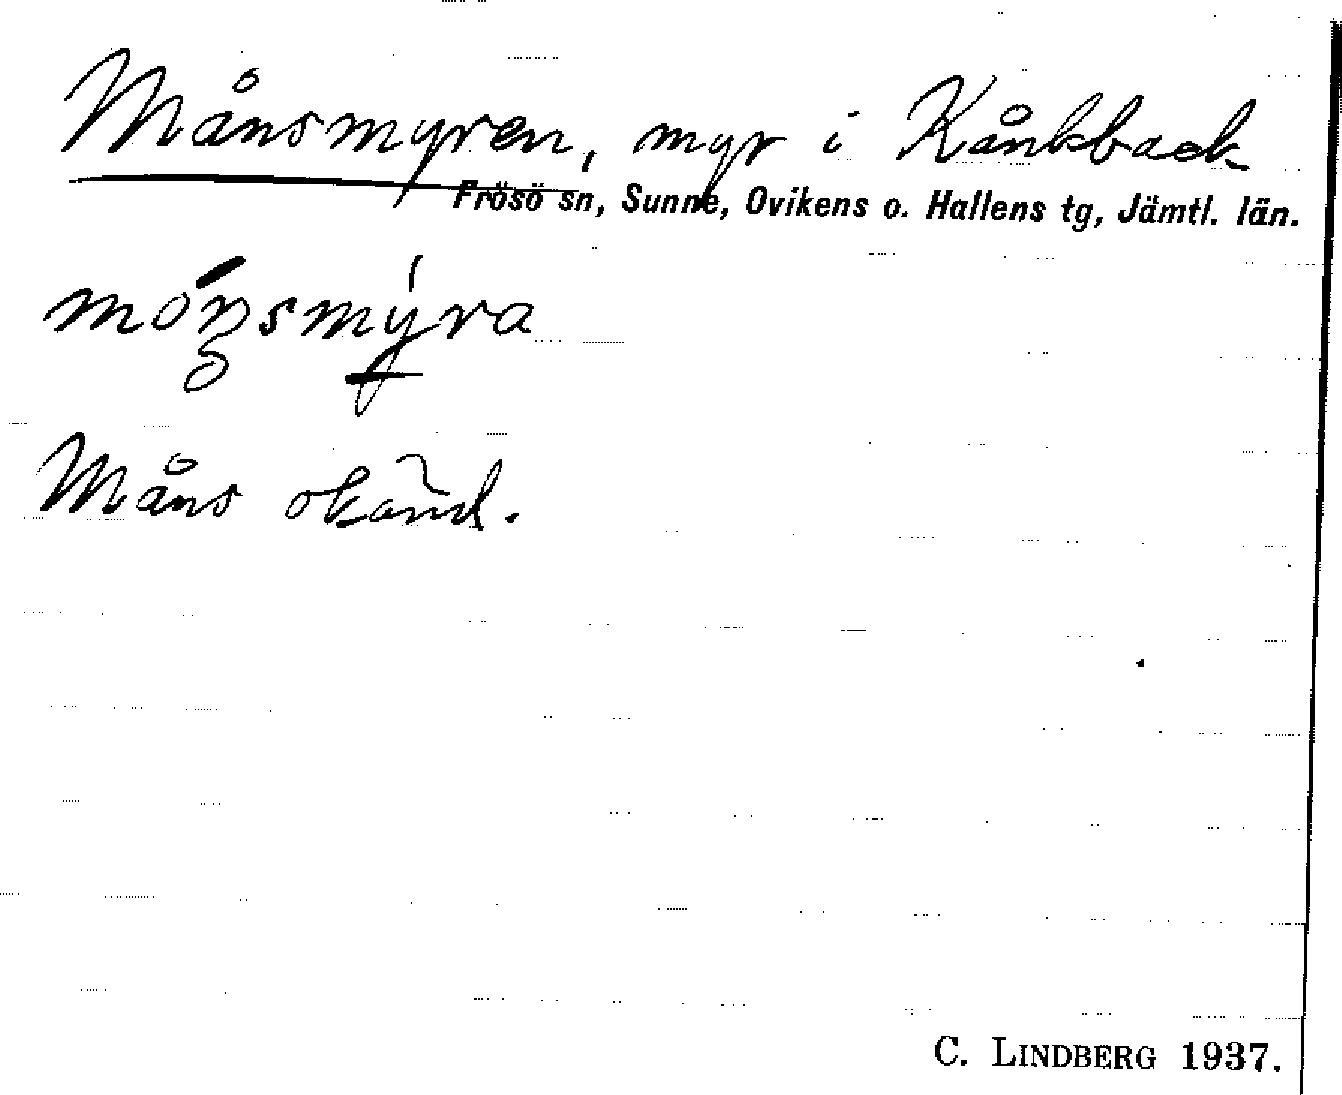 Månsmyren, myr i Kånkback
Frösö sn, Sunne, Ovikens o. Hallens tg, Jämtl. län.
mónsmýra
Måns okänd.
C. LINDBERG 1937.